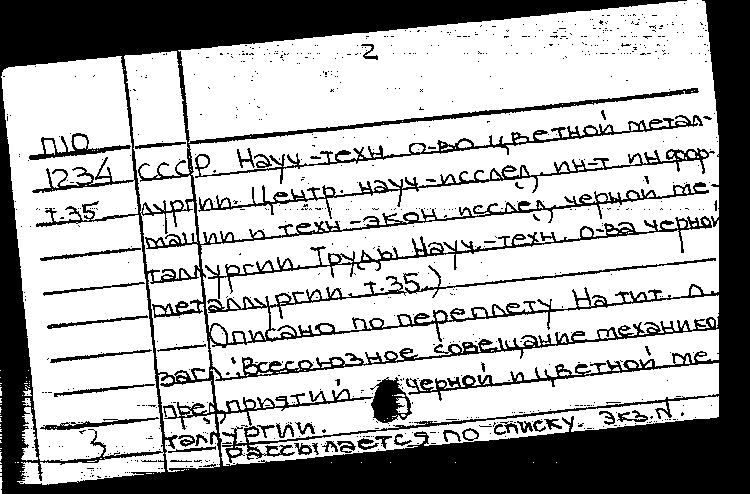 2
П10
1234 СССР. Науч.-техн. о-во цветной метал-
т.35 лургии. Центр. науч-исслед. ин-т инфор-
мации и техн.-экон. исслед. черной ме-
таллургии. Труды Науч.-техн. о-ва черной
металлургии. т.35.)
Описано по переплету. На тит. л.
загл.: Всесоюзное совещание механико
предприятий черной и цветной ме
таллургии.
3 рассылается по списку. экз.N.